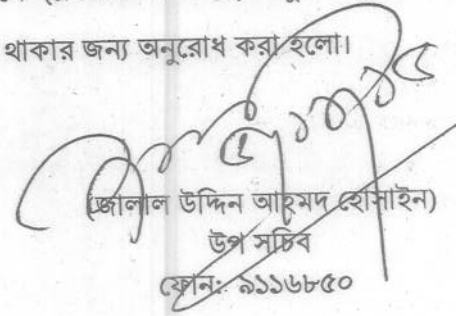 থাকার জন্য অনুরোধ করা হলো।
(জালাল উদ্দিন আহমদ হোসাইন)
উপ সচিব
ফোন: ৯১১৬৮৫০